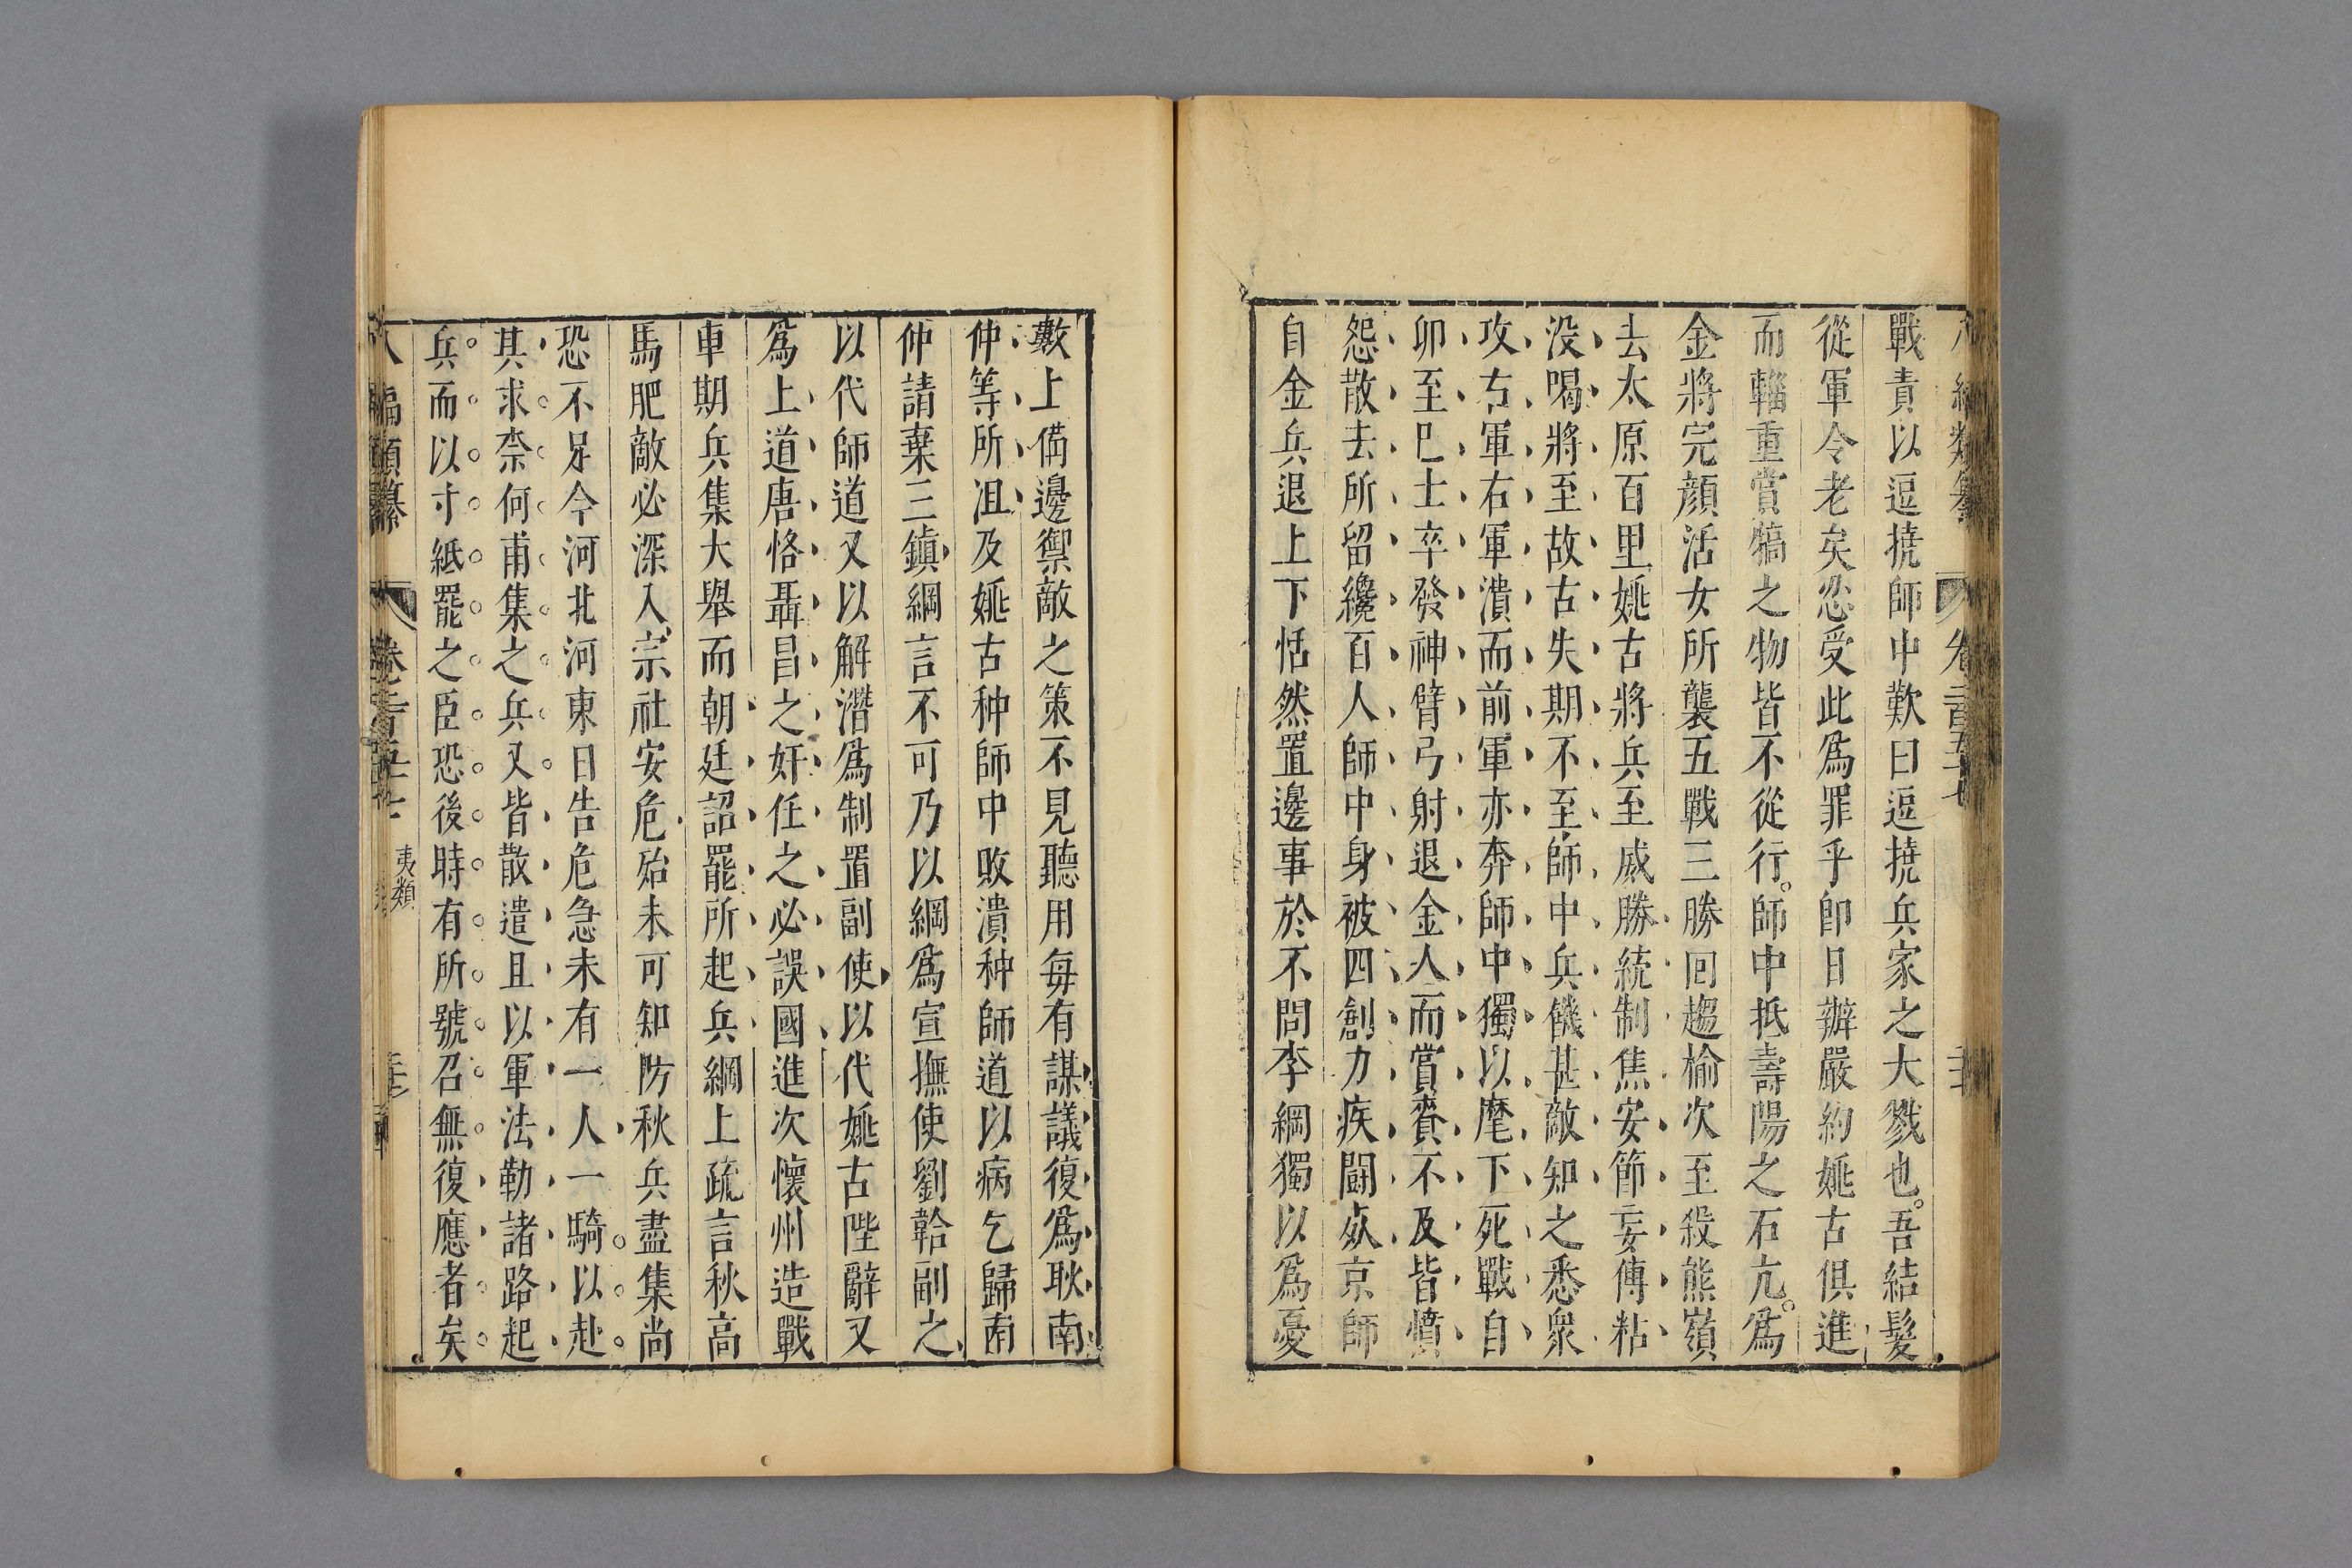 戰責以逗撓師中歎曰逗撓兵家之大戮也。吾結髮
從軍令老矣忍受此爲罪乎卽日辦嚴約姚古俱進
而輜重賞犒之物皆不從行。師中抵壽陽之石亢。爲
金將完顔活女所襲五戰三勝回趨榆次至殺熊嶺
去太原百里姚古將兵至威勝統制焦安節妄傳粘
没喝將至故古失期不至師中兵饑甚敵知之悉衆
攻右軍右軍潰而前軍亦奔師中獨以麾下死戰自
卯至巳士卒發神臂弓射退金人而賞賚不及皆憤
怨散去所留纔百人師中身被四創力疾鬬死京師
自金兵退上下恬然置邊事於不問李綱獨以爲憂
數上備邊禦敵之策不見聽用每有謀議復爲耿南
仲等所沮及姚古种師中敗潰种師道以病乞歸南
仲請棄三鎮綱言不可乃以綱爲宣撫使劉韐副之
以代師道又以解潛爲制置副使以代姚古陛辭又
爲上道唐恪聶昌之奸任之必誤國進次懷州造戰
車期兵集大舉而朝廷詔罷所起兵綱上疏言秋高
馬肥敵必深入宗社安危殆未可知防秋兵盡集尚
恐不足今河北河東日告危急未有一人一騎以赴
其求柰何甫集之兵又皆散遣且以軍法勒諸路起
兵而以寸紙罷之臣恐後時有所號召無復應者矣
八編類纂
夷類